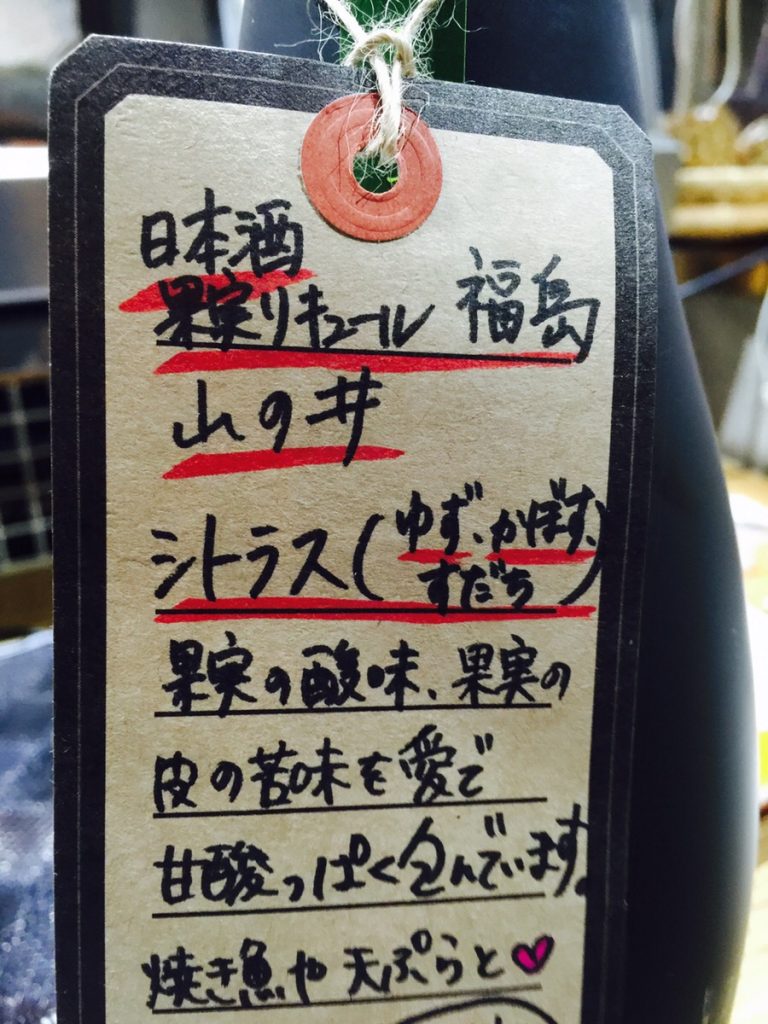 日本酒
果実リキュール 福島
山の井
シトラス(ゆず、かぼす、
すだち)
果実の酸味、果実の
皮の苦味を愛で
甘酸っぱく包んでいます。
焼き魚や天ぷらと♥